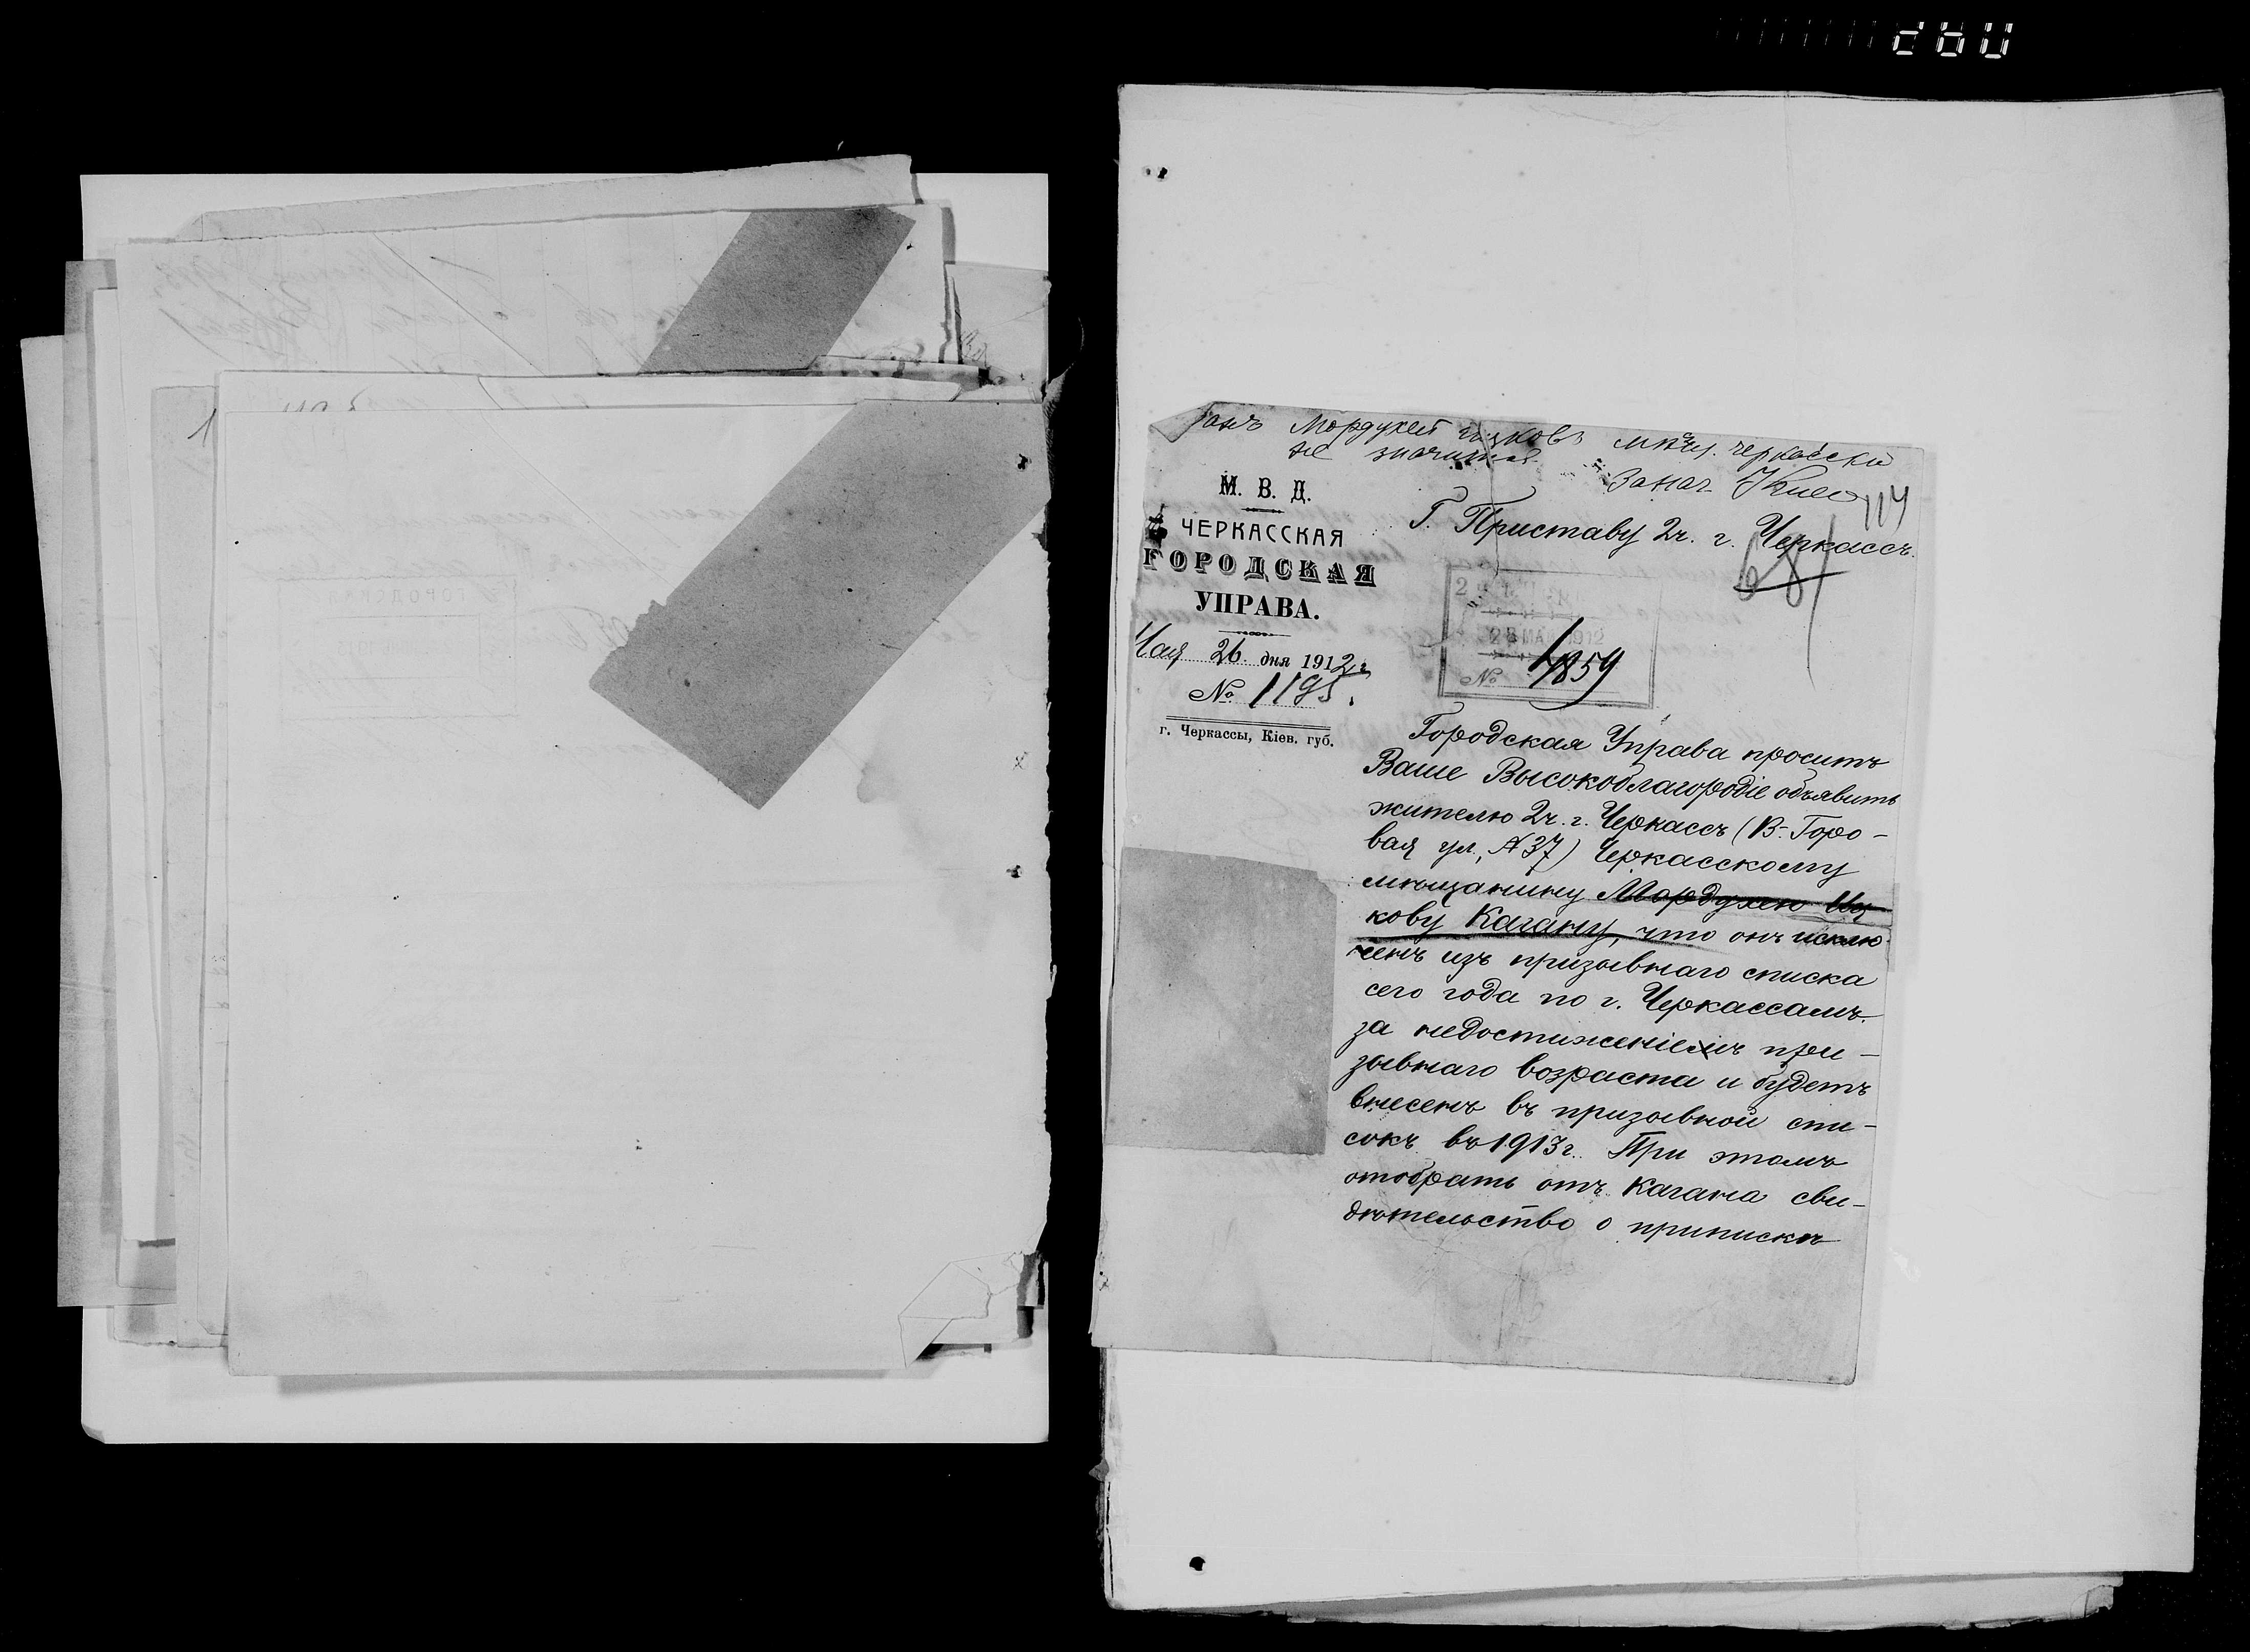 Мордухей Ицковъ мѣщ. черкасски
не значится
М. В. Д.
ЧЕРКАССКАЯ
ГОРОДСКАЯ
УПРАВА.
Мая 26 дня 1912 г.
№ 1195.
г. Черкассы, Кіев. губ.
114
Г. Приставу 2ч. г. Черкассъ.
68
2
28 МАЯ 1912
№ 1859
Городская Управа проситъ
Ваше Высокоблагородіе объявить
жителю 2ч. г. Черкассъ (В.-Горо-
вая ул., №37) Черкасскому
мѣщанину Мордухею Иц
кову Кагану, что онъ исклю
ченъ изъ призывнаго списка
сего года по г. Черкассамъ
за недостиженіемъ при-
зывнаго возраста и будетъ
внесенъ въ призывной спи-
сокъ въ 1913г. При этомъ
отобрать отъ Кагана сви-
дѣтельство о припискѣ